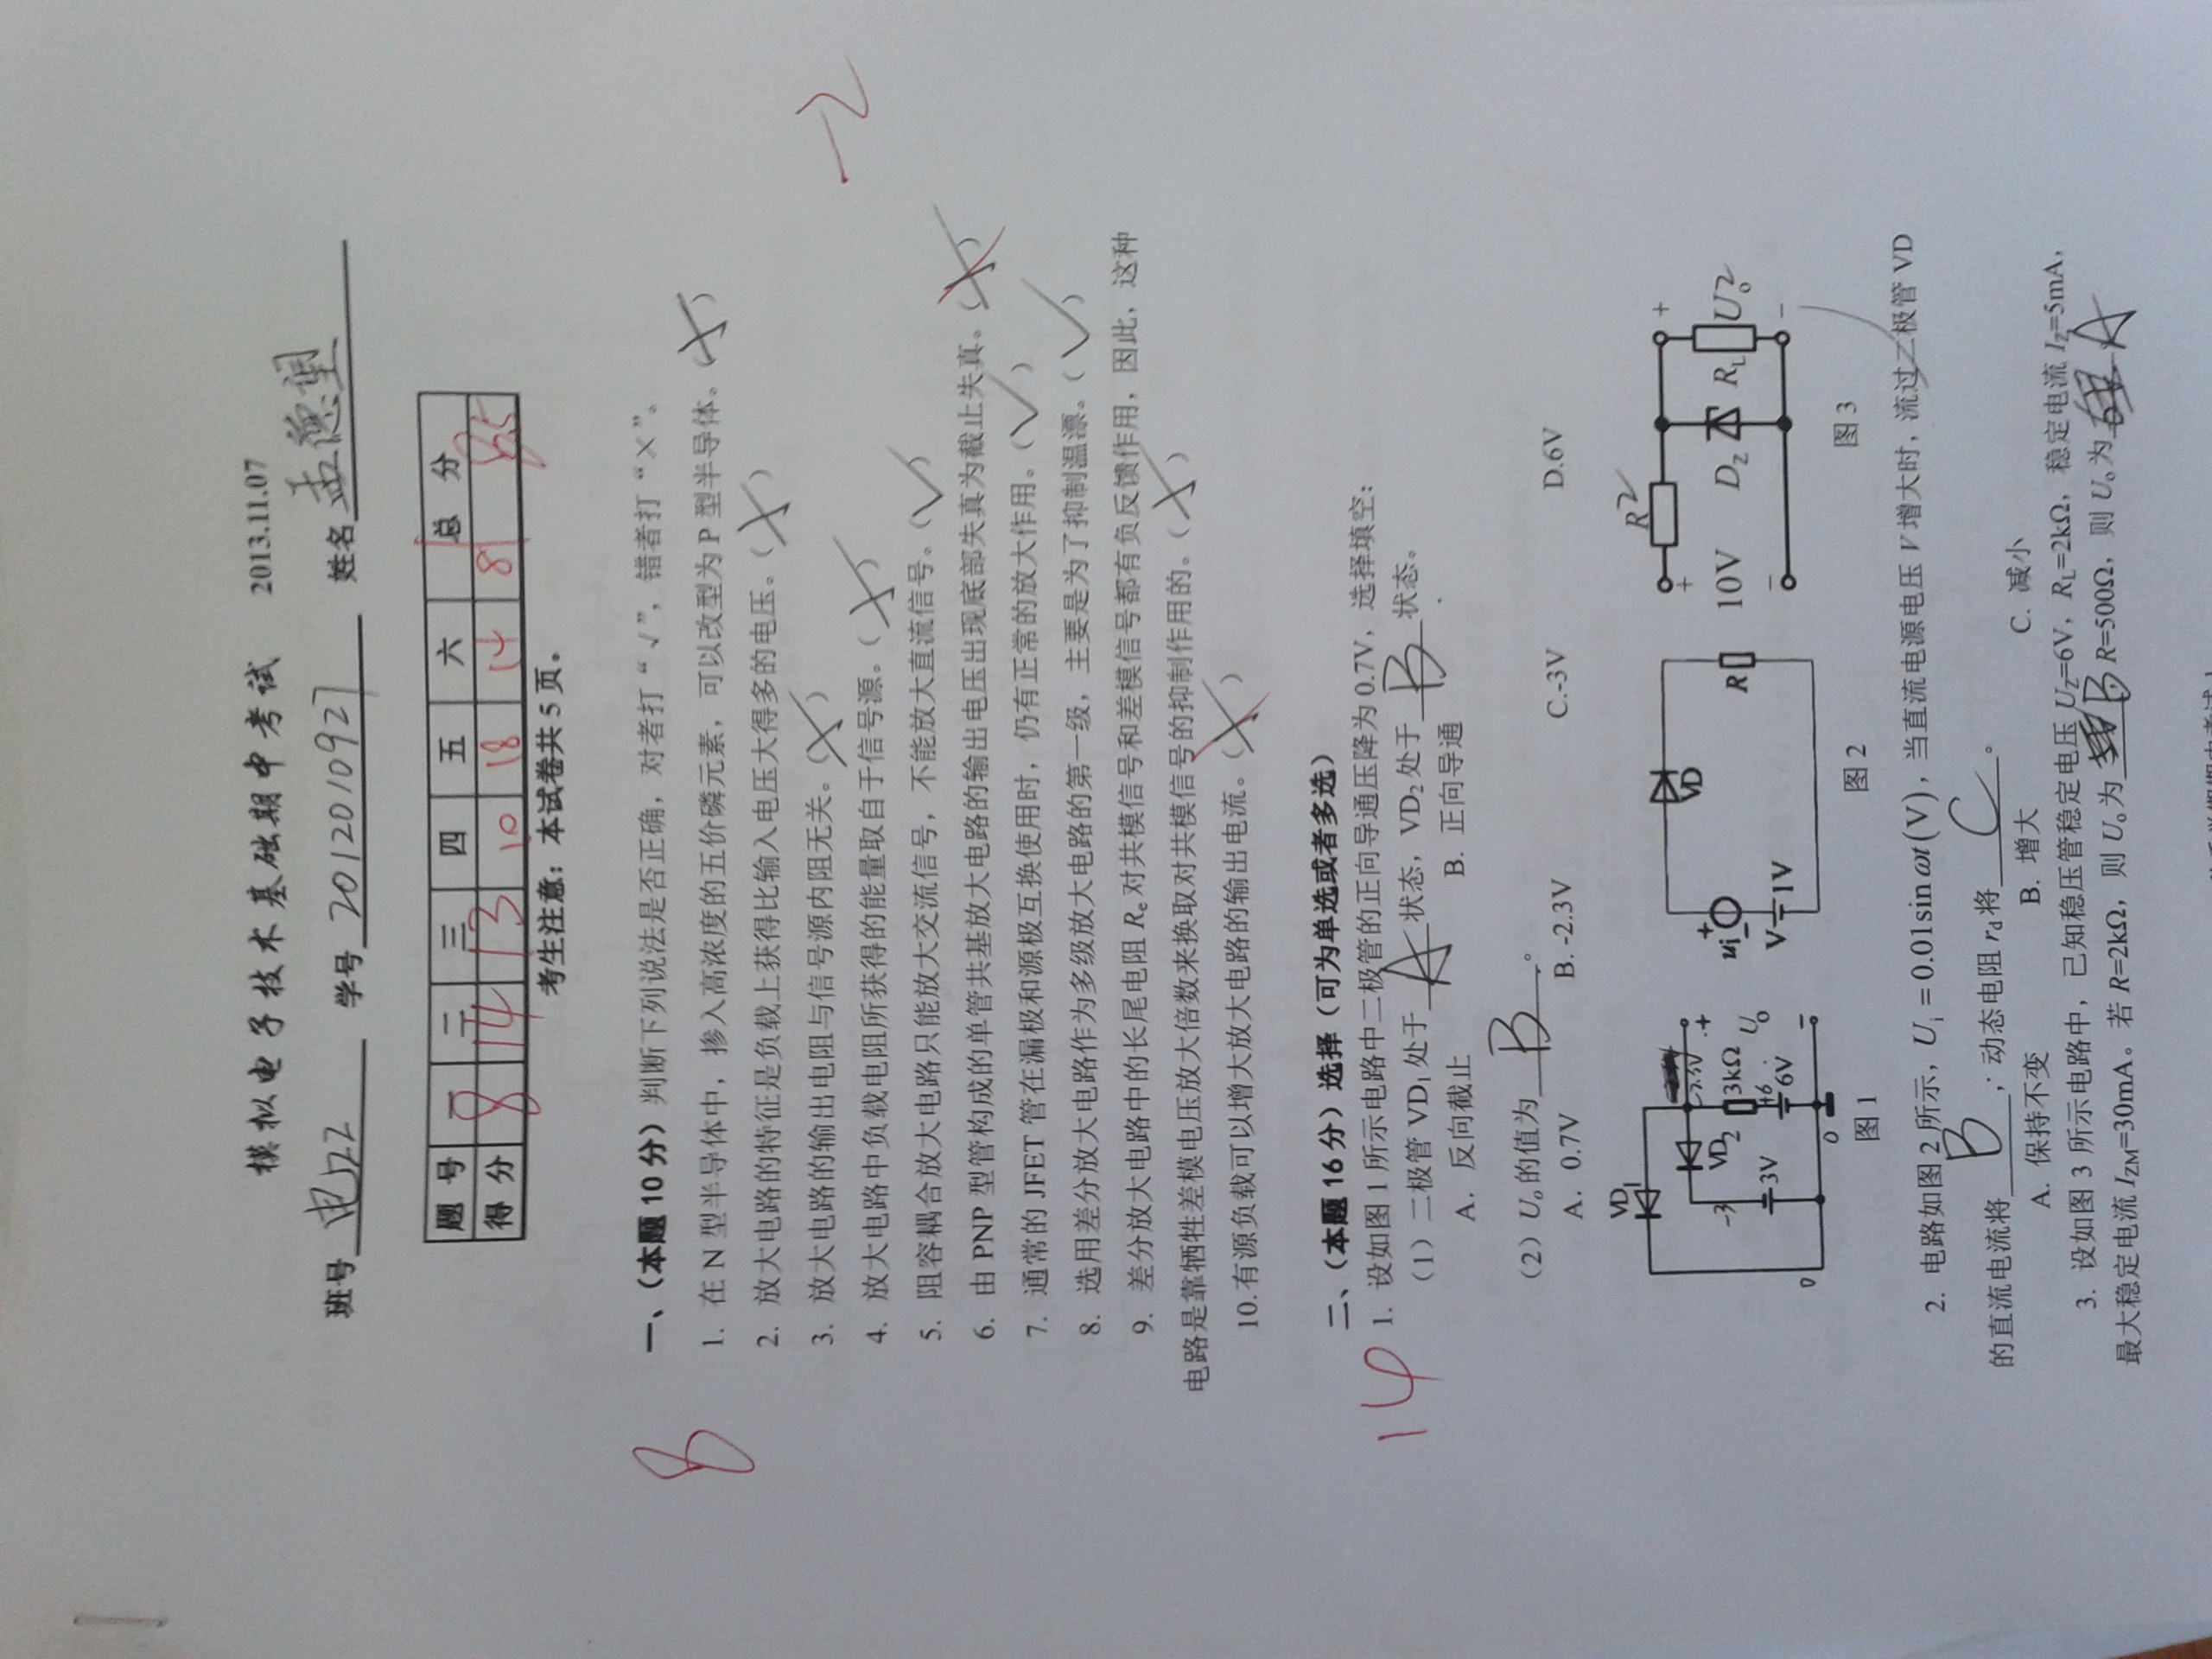 模拟电子技术基础期中考试 2013.11.07
班号 电22 学号 2012010927 姓名 孟德望
题号 一 二 三 四 五 六 总分
得分 8 14 13 10 18 14 8 85
考生注意：本试卷共 5 页。
8
一、（本题 10 分）判断下列说法是否正确，对者打“√”，错者打“×”。
1. 在 N 型半导体中，掺入高浓度的五价磷元素，可以改型为 P 型半导体。（×）
2. 放大电路的特征是负载上获得比输入电压大得多的电压。（×）
3. 放大电路的输出电阻与信号源内阻无关。（×）
-2
4. 放大电路中负载电阻所获得的能量取自于信号源。（×）
5. 阻容耦合放大电路只能放大交流信号，不能放大直流信号。（√）
6. 由 PNP 型管构成的单管共基放大电路的输出电压出现底部失真为截止失真。（×）
7. 通常的 JFET 管在漏极和源极互换使用时，仍有正常的放大作用。（√）
8. 选用差分放大电路作为多级放大电路的第一级，主要是为了抑制温漂。（√）
9. 差分放大电路中的长尾电阻 Re 对共模信号和差模信号都有负反馈作用，因此，这种
电路是靠牺牲差模电压放大倍数来换取对共模信号的抑制作用的。（×）
10.有源负载可以增大放大电路的输出电流。（×）
二、（本题 16 分）选择（可为单选或者多选）
14
1. 设如图 1 所示电路中二极管的正向导通压降为 0.7V，选择填空：
（1）二极管 VD1 处于 A 状态，VD2 处于 B 状态。
A. 反向截止 B. 正向导通
（2）Uo 的值为 B 。
A. 0.7V B. -2.3V C.-3V D.6V
VD1
VD2
-2.3V
-3
3V
3kΩ
+6
6V
+
Uo
−
0
0
图 1
VD
+
ui
−
V 1V
R
图 2
R 2
+
10V
−
DZ
RL
+
Uo 2
−
图 3
2. 电路如图 2 所示，Ui = 0.01sin ωt (V)，当直流电源电压 V 增大时，流过二极管 VD
的直流电流将 B ，动态电阻 rd 将 C 。
A. 保持不变 B. 增大 C. 减小
3. 设如图 3 所示电路中，已知稳压管稳定电压 UZ=6V，RL=2kΩ，稳定电流 IZ=5mA，
最大稳定电流 IZM=30mA。若 R=2kΩ，则 Uo 为 B R=500Ω，则 Uo 为 A